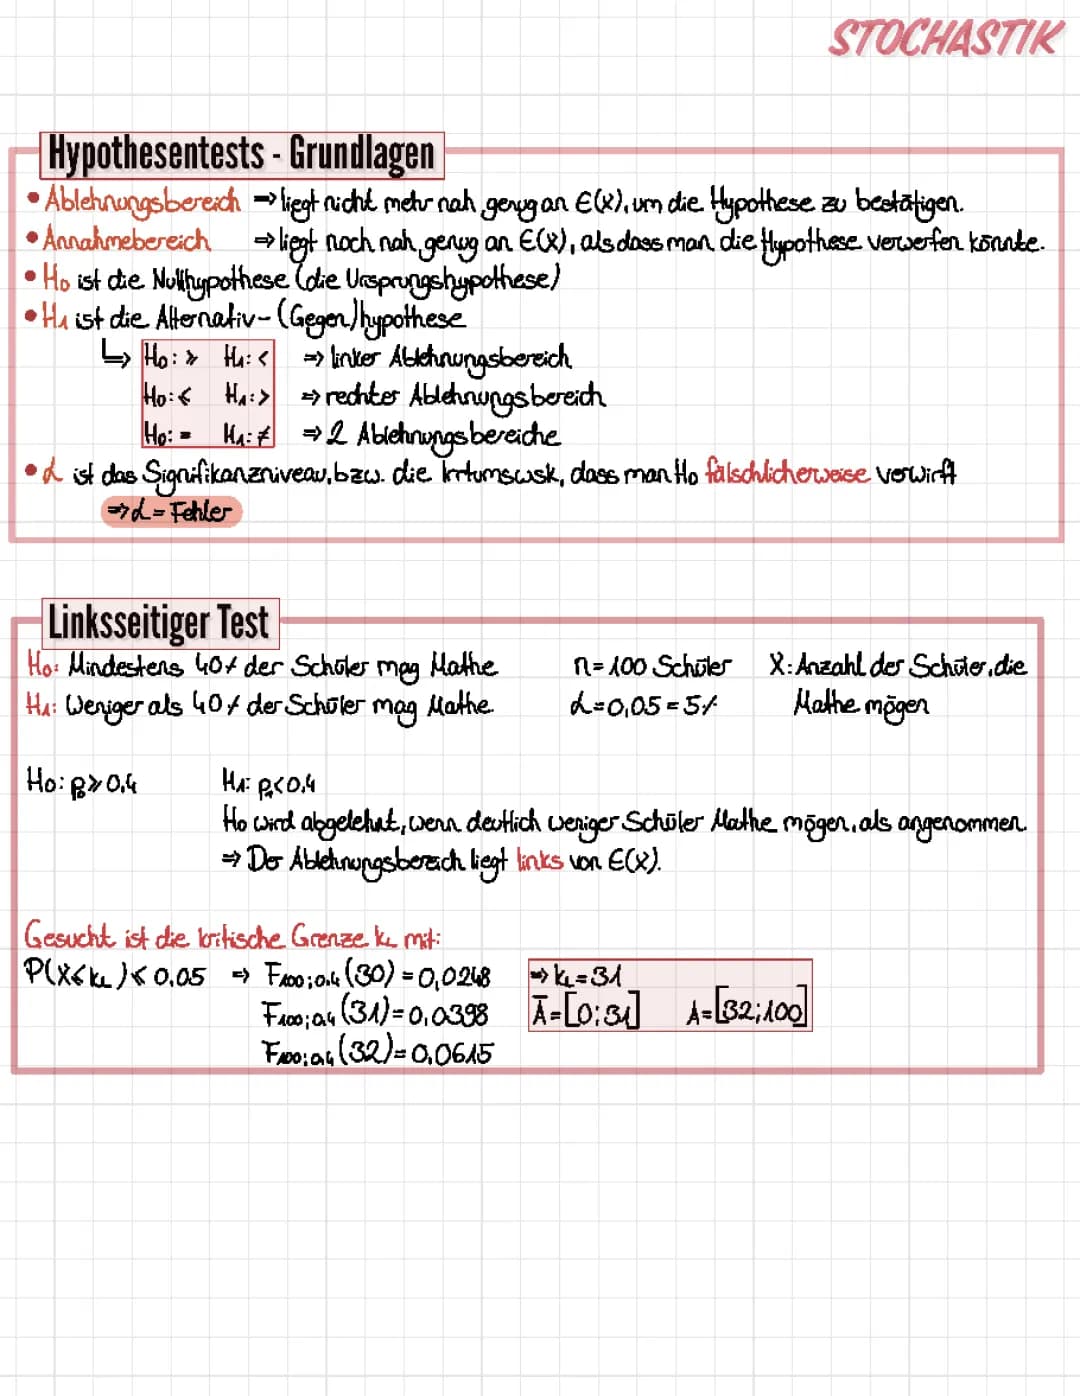 STOCHASTIK
Hypothesentests - Grundlagen
• Ablehnungsbereich ⇒ liegt nicht mehr nah genug an E(X), um die Hypothese zu bestätigen.
• Annahmebereich ⇒ liegt noch nah genug an E(X), als dass man die Hypothese verwerfen könnte.
• H₀ ist die Nullhypothese (die Ursprungshypothese)
• H₁ ist die Alternativ-(Gegen)hypothese
↳ H₀: ≥ H₁: < ⇒ linker Ablehnungsbereich
H₀: ≤ H₁: > ⇒ rechter Ablehnungsbereich
H₀: = H₁: ≠ ⇒ 2 Ablehnungsbereiche
• α ist das Signifikanzniveau, bzw. die Irrtumswsk, dass man H₀ fälschlicherweise verwirft
⇒ α = Fehler
Linksseitiger Test
H₀: Mindestens 40% der Schüler mag Mathe n = 100 Schüler X: Anzahl der Schüler, die
H₁: Weniger als 40% der Schüler mag Mathe. α = 0,05 = 5% Mathe mögen
H₀: p₀ ≥ 0,4 H₁: p₁ < 0,4
H₀ wird abgelehnt, wenn deutlich weniger Schüler Mathe mögen, als angenommen.
⇒ Der Ablehnungsbereich liegt links von E(X).
Gesucht ist die kritische Grenze k_L mit:
P(X ≤ k_L) ≤ 0,05 ⇒ F₁₀₀;₀,₄ (30) = 0,0248 ⇒ k_L = 31
F₁₀₀;₀,₄ (31) = 0,0398 Ā = [0;31] A = [32;100]
F₁₀₀;₀,₄ (32) = 0,0615